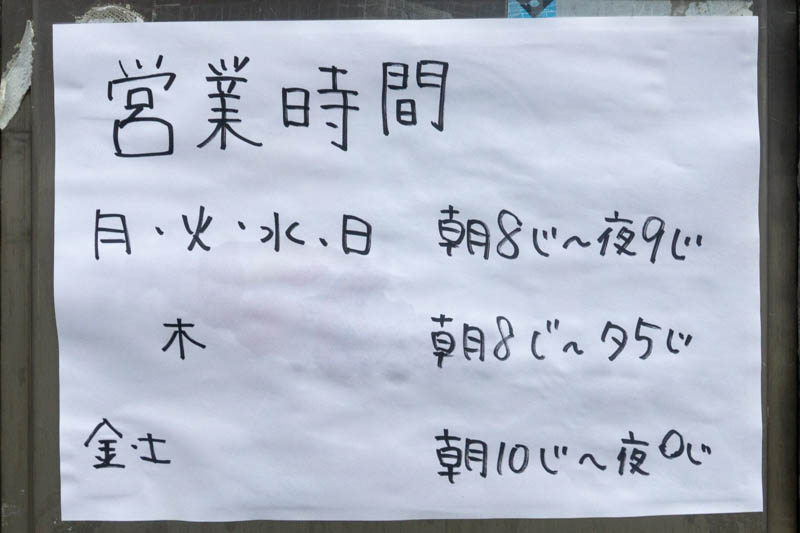 営業時間
月・火・水、日 朝8じ〜夜9じ
木 朝8じ〜夕5じ
金・土 朝10じ〜夜0じ